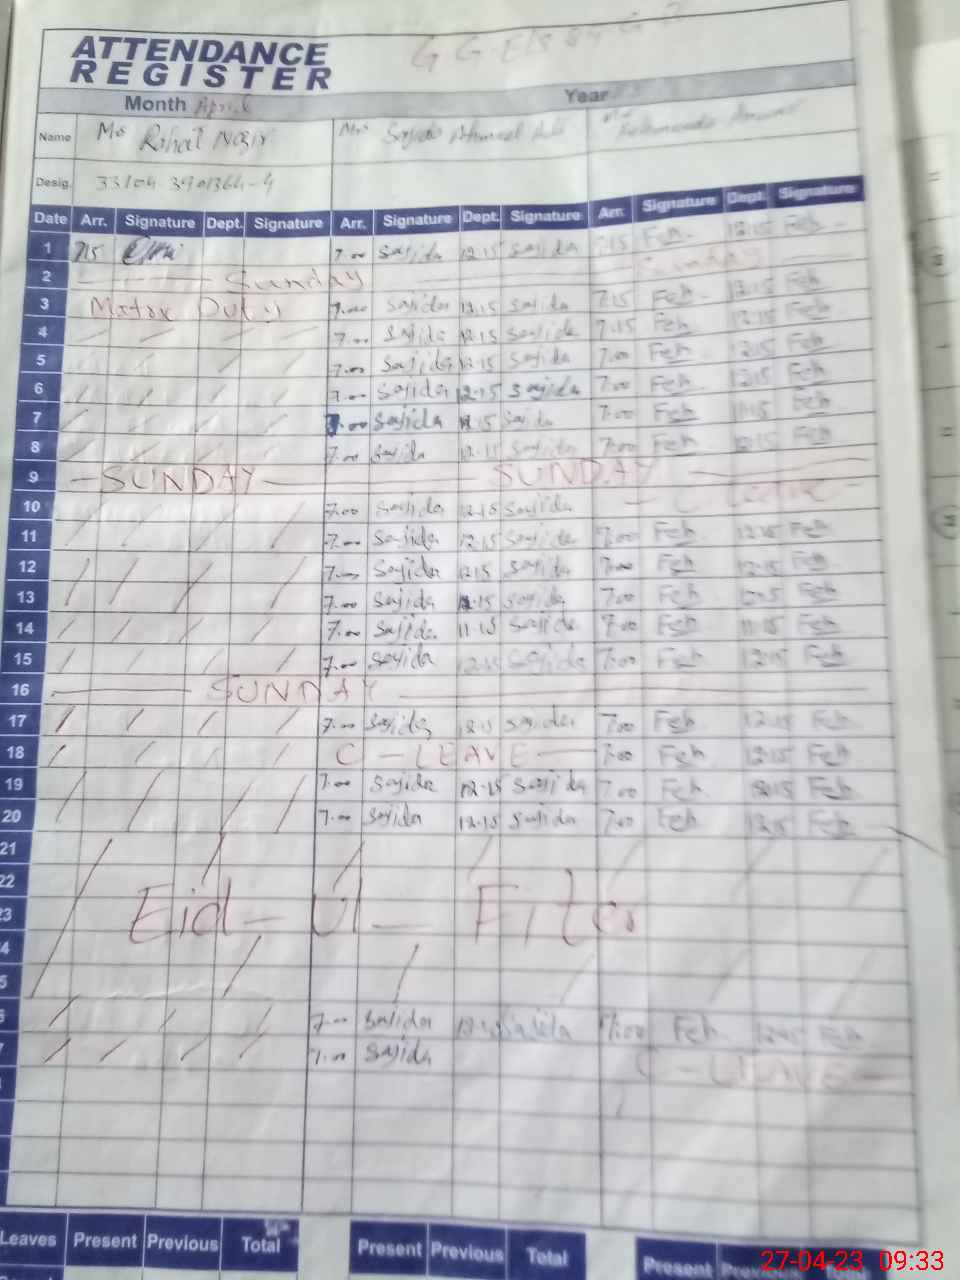 ATTENDANCE
REGISTER
Month April Year
Name Ms Rahat Nazir Mrs Sajida
Desig. 33104-3901364-4
Date Arr. Signature Dept. Signature Arr. Signature Dept. Signature Arr. Signature Dept. Signature
1 7.15 7.00 Sajida 12.15 Sajida 7.15 Feh 12.15 Feh
2 Sunday Sunday
3 Matric Duty 7.00 Sajida 12.15 Sajida 7.15 Feh 12.15 Feh
4 7.00 Sajida 12.15 Sajida 7.15 Feh 12.15 Feh
5 7.00 Sajida 12.15 Sajida 7.00 Feh 12.15 Feh
6 7.00 Sajida 12.15 Sajida 7.00 Feh 12.15 Feh
7 7.00 Sajida Sajida 7.00 Feh 11.15 Feh
8 7.00 Sajida 12.15 Sajida 7.00 Feh 12.15 Feh
9 - SUNDAY - SUNDAY -
10 7.00 Sajida 12.15 Sajida C Leave
11 7.00 Sajida 12.15 Sajida 7.00 Feh 12.15 Feh
12 7.00 Sajida 12.15 Sajida 7.00 Feh 12.15 Feh
13 7.00 Sajida 12.15 Sajida 7.00 Feh Feh
14 7.00 Sajida 11.15 Sajida 7.00 Feh 11.15 Feh
15 7.00 Sajida 12.15 Sajida 7.00 Feh 12.15 Feh
16 SUNDAY
17 7.00 Sajida 12.15 Sajida 7.00 Feh 12.15 Feh
18 C - LEAVE - 7.00 Feh 12.15 Feh
19 7.00 Sajida 12.15 Sajida 7.00 Feh 12.15 Feh
20 7.00 Sajida 12.15 Sajida 7.00 Feh 12.15 Feh
21
22
23 Eid - Ul - Fiter
4
5
6 7.00 Sajida Sajida 7.00 Feh Feh
7 7.00 Sajida C - LEAVE -
Leaves Present Previous Total Present Previous Total Present Previous
27-04-23 09:33